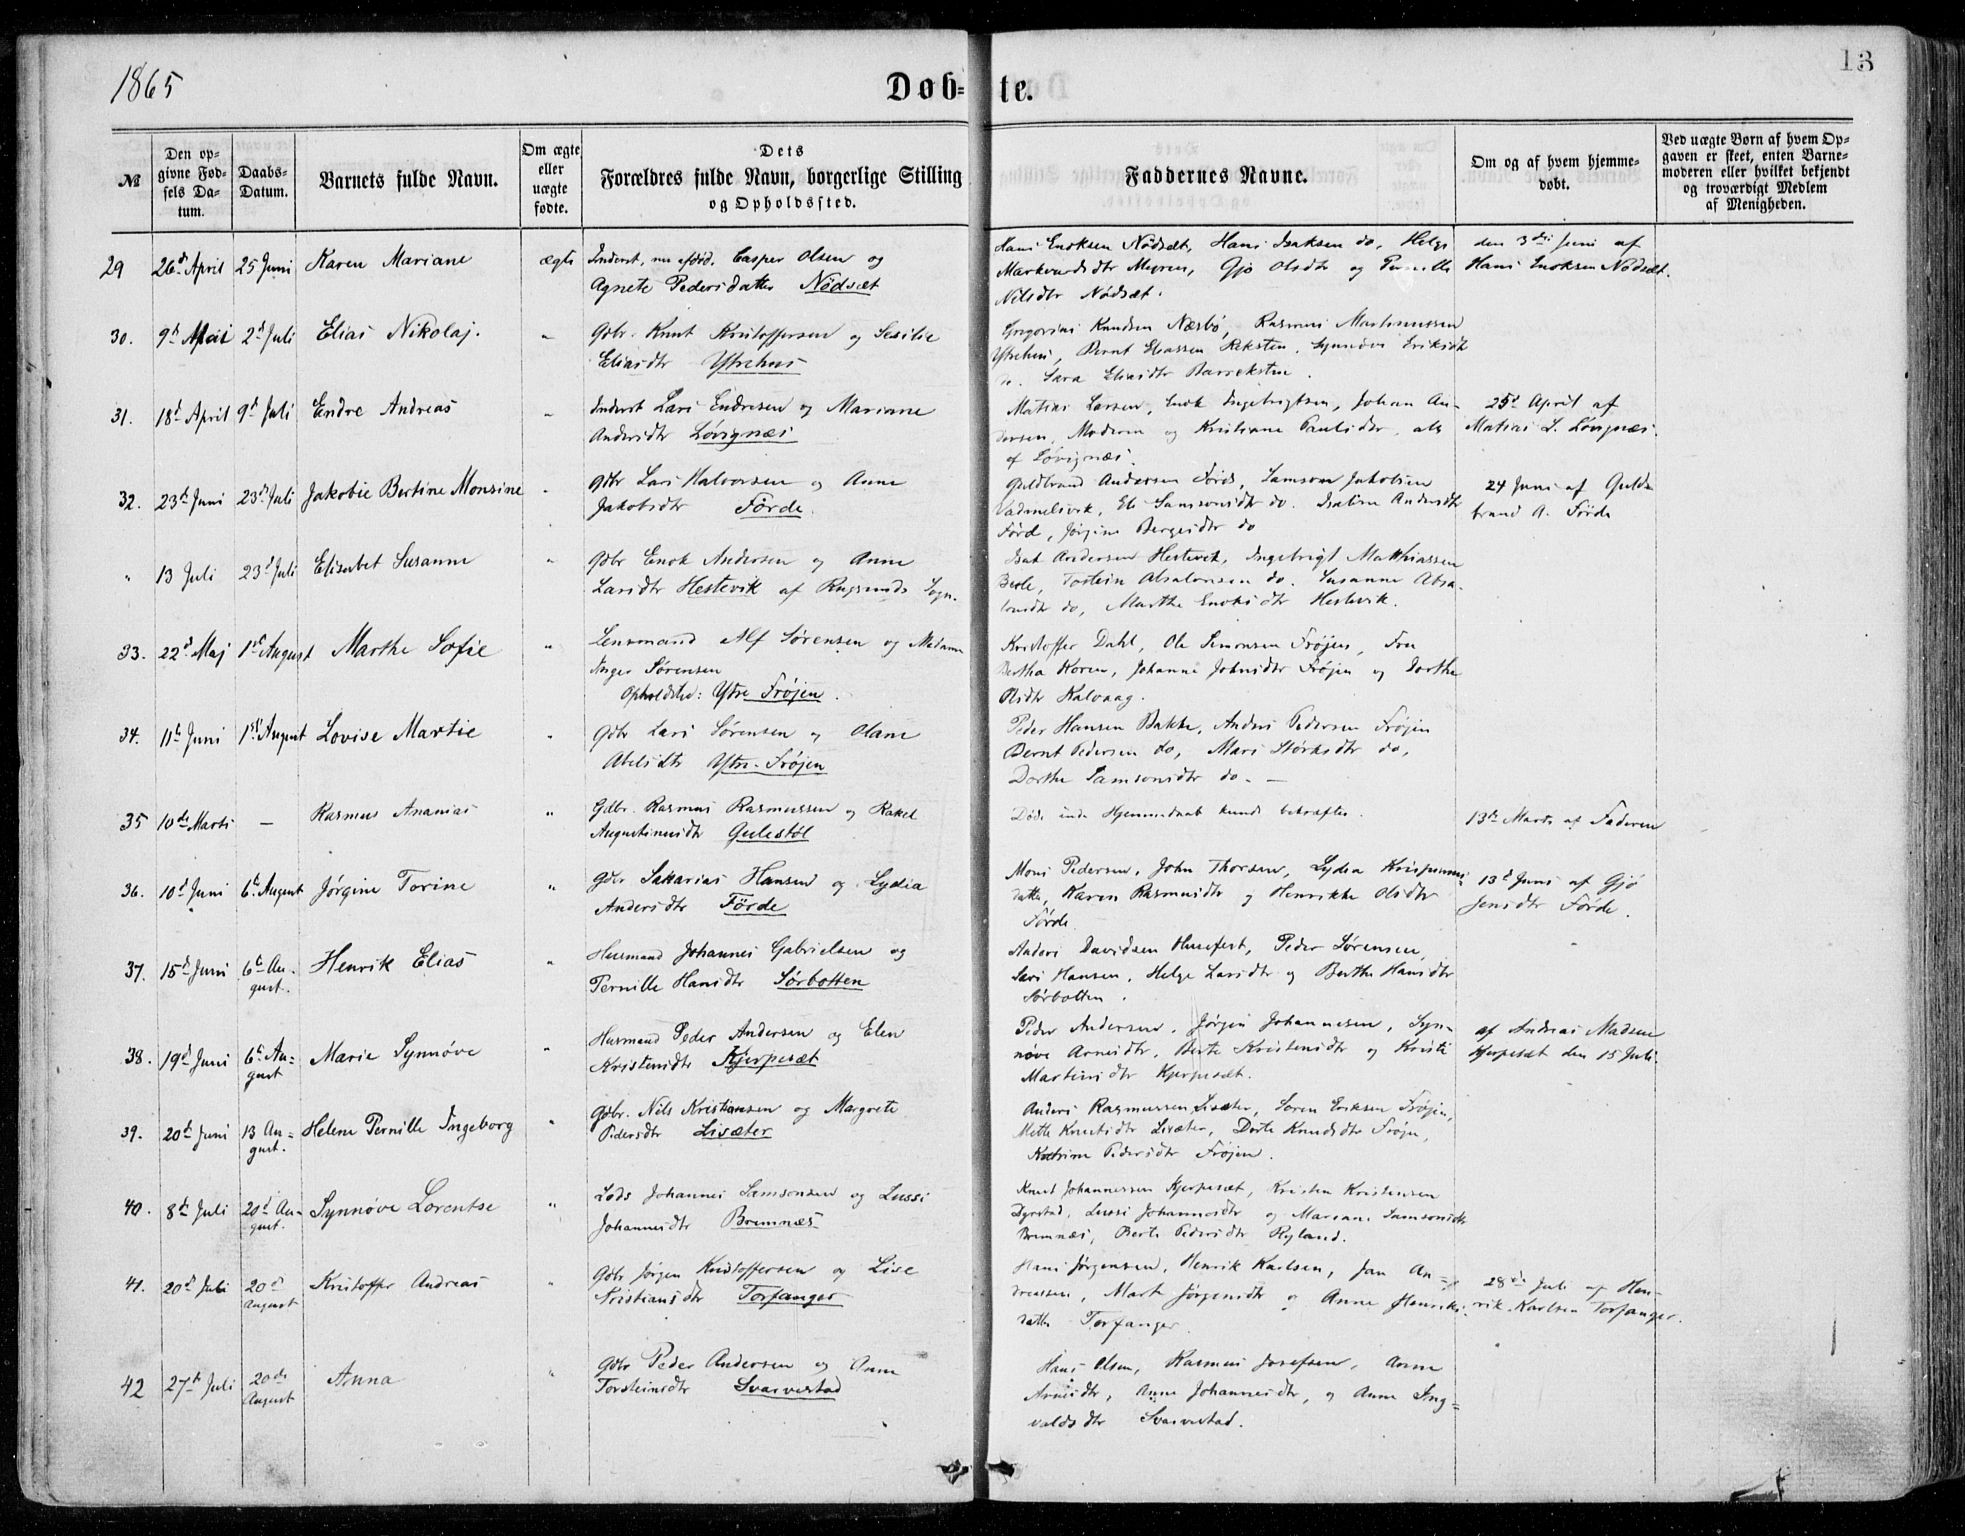 1865
Dob=te.
13
№
Den op-
givne Fød-
sels Da-
tum.
Daabs-
Datum.
Barnets fulde Navn.
Om ægte
eller
uægte
fødte.
Dets
Forældres fulde Navn, borgerlige Stilling
og Opholdssted.
Faddernes Navne.
Om og af hvem hjemme-
døbt.
Ved uægte Børn af hvem Op-
gaven er skeet, enten Barne-
moderen eller hvilket bekjendt
og troværdigt Medlem
af Menigheden.
29 26d April 25 Juni Karen Mariane ægte Casper Olsen og
Agnete Pedersdatter Nødsæt
Hans Enoksen Nødsæt, Hans Isaksen do, Helge
Markvardsdtr Myren, Gjø Olsdtr og Pernille
Nilsdtr Nødsæt.
den 3die Juni af
Hans Enoksen Nødsæt.
30. 9d Mai 2d Juli Elias Nikolaj. " Gdbr. Knut Kristoffersen og Sesilie
Eliasdtr Ytrehus
Gregorius Knudsen Næsbø, Rasmus Martinussen
Ytrehus, Bernt Eliassen Reksten, Synneve Eriksdtr
do. Sara Eliasdtr Barrekstn.
31. 18d April 9d Juli Endre Andreas " Inderst Lars Endresen og Mariane
Andersdtr Løvignæs
Matias Larsen, Enok Ingebrigtsen, Johan An-
dersen, Moderen og Kristiane Paulsdtr, alle
af Løvignæs.
25d April af
Matias L. Løvignæs.
32. 23d Juni 23d Juli Jakobie Bertine Monsine " Gdbr Lars Halvorsen og Anne
Jakobsdtr Førde.
Guldbrand Andersen Førde, Samson Jakobsen
Vadmelsvik, Eli Samsonsdtr do. Isaline Andersdtr
Førd, Jørgine Bergesdtr do
24 Juni af Guld-
brand A. Førde
" 13 Juli 23d Juli Elisabet Susanne " Gdbr Enok Andersen og Anne
Larsdtr Hestevik af Rugsunds Sogn.
Isak Andersen Hestevik, Ingebrigt Matthiassen
Berle, Torstein Absalonsen do. Susanne Absa-
lonsdtr do, Marthe Enoksdtr Hestevik.
33. 22d Maj 1st August Marthe Sofie " Lensmand Alf Sørensen og Madame
Inger Sørensen
Opholdsted: Ytre Frøjen.
Kristoffer Dahl, Ole Simonsen Frøjen, Fru
Bertha Koren, Johanne Johnsdtr Frøjen og Dorthe
Olsdtr Kalvaag.
34. 11t Juni 1st August Lovise Martie " Gdbr Lars Sørensen og Oline
Abelsdtr Ytre-Frøjen
Peder Hansen Bakke, Anders Pedersen Frøjen
Bernt Pedersen do, Mari Størksdtr do,
Dorthe Samsonsdtr do. —
35 10de Marts — Rasmus Ananias " Gdbr. Rasmus Rasmussen og Rakel
Augustinusdtr Gulestøl
Døde inden Hjemmedaab kunde bekræftes.
13de Marts af Faderen
36. 10d Juni 6t August Jørgine Torine " Gdbr Sakarias Hansen og Lydia
Andersdtr Førde
Mons Pedersen, John Thorsen, Lydia Krispinus-
datter, Karen Rasmusdtr og Henrikke Olsdtr
Førde
13d Juni af Gjø
Jensdtr Førde.
37. 15d Juni 6t Au-
gust. Henrik Elias " Husmand Johannes Gabrielsen og
Pernille Hansdtr Sørbotten
Anders Davidsen Husefest, Peder Sørensen,
Lars Hansen, Helge Larsdtr og Berthe Hansdtr
Sørbotten.
38. 19d Juni 6t Au-
gust Marie Synnøve " Husmand Peder Andersen og Elen
Kristensdtr Kjerpesæt
Peder Andersen, Jørgen Johannesen, Syn-
nøve Arnesdtr, Berte Kristensdtr og Kristi
Martinsdtr Kjerpesæt.
af Andreas Madsen
Kjerpesæt den 15 Juli
39. 20d Juni 13 Au-
gust. Helene Pernille Ingeborg " Gdbr. Nils Kristiansen og Margrete
Pedersdtr Lisæter
Anders Rasmussen Lisæter, Søren Eriksen Frøjen,
Mette Knutsdtr Lisæter, Dorte Knudsdtr Frøjen,
Katrine Pedersdtr Frøjen.
40. 8d Juli 20d Au-
gust. Synnøve Lorentse " Lods Johannes Samsonsen og Lussi
Johannesdtr Bremnæs
Knut Johannessen Kjerpesæt, Kristen Kristensen
Dyrstad, Lussi Johannesdtr og Mariane Samsonsdtr
Bremnæs, Berte Pedersdtr Ryland.
41. 20d Juli 20d
August Kristoffer Andreas " Gdbr Jørgen Kristoffersen og Lise
Kristiansdtr Torfanger
Hans Jørgensen, Henrik Karlsen, Jan An-
dreassen, Marte Jørgensdtr og Anne Henriks-
datter Torfanger.
28de Juli af Hen-
rik Karlsen Torfanger.
42 27d Juli 20de
August Anna " Gdbr Peder Andersen og Anne
Torsteinsdtr Svarvestad
Hans Olsen, Rasmus Josefsen, Anne
Arnesdtr, Anne Johannesdtr, og Anne Ing-
valdsdtr Svarvestad.